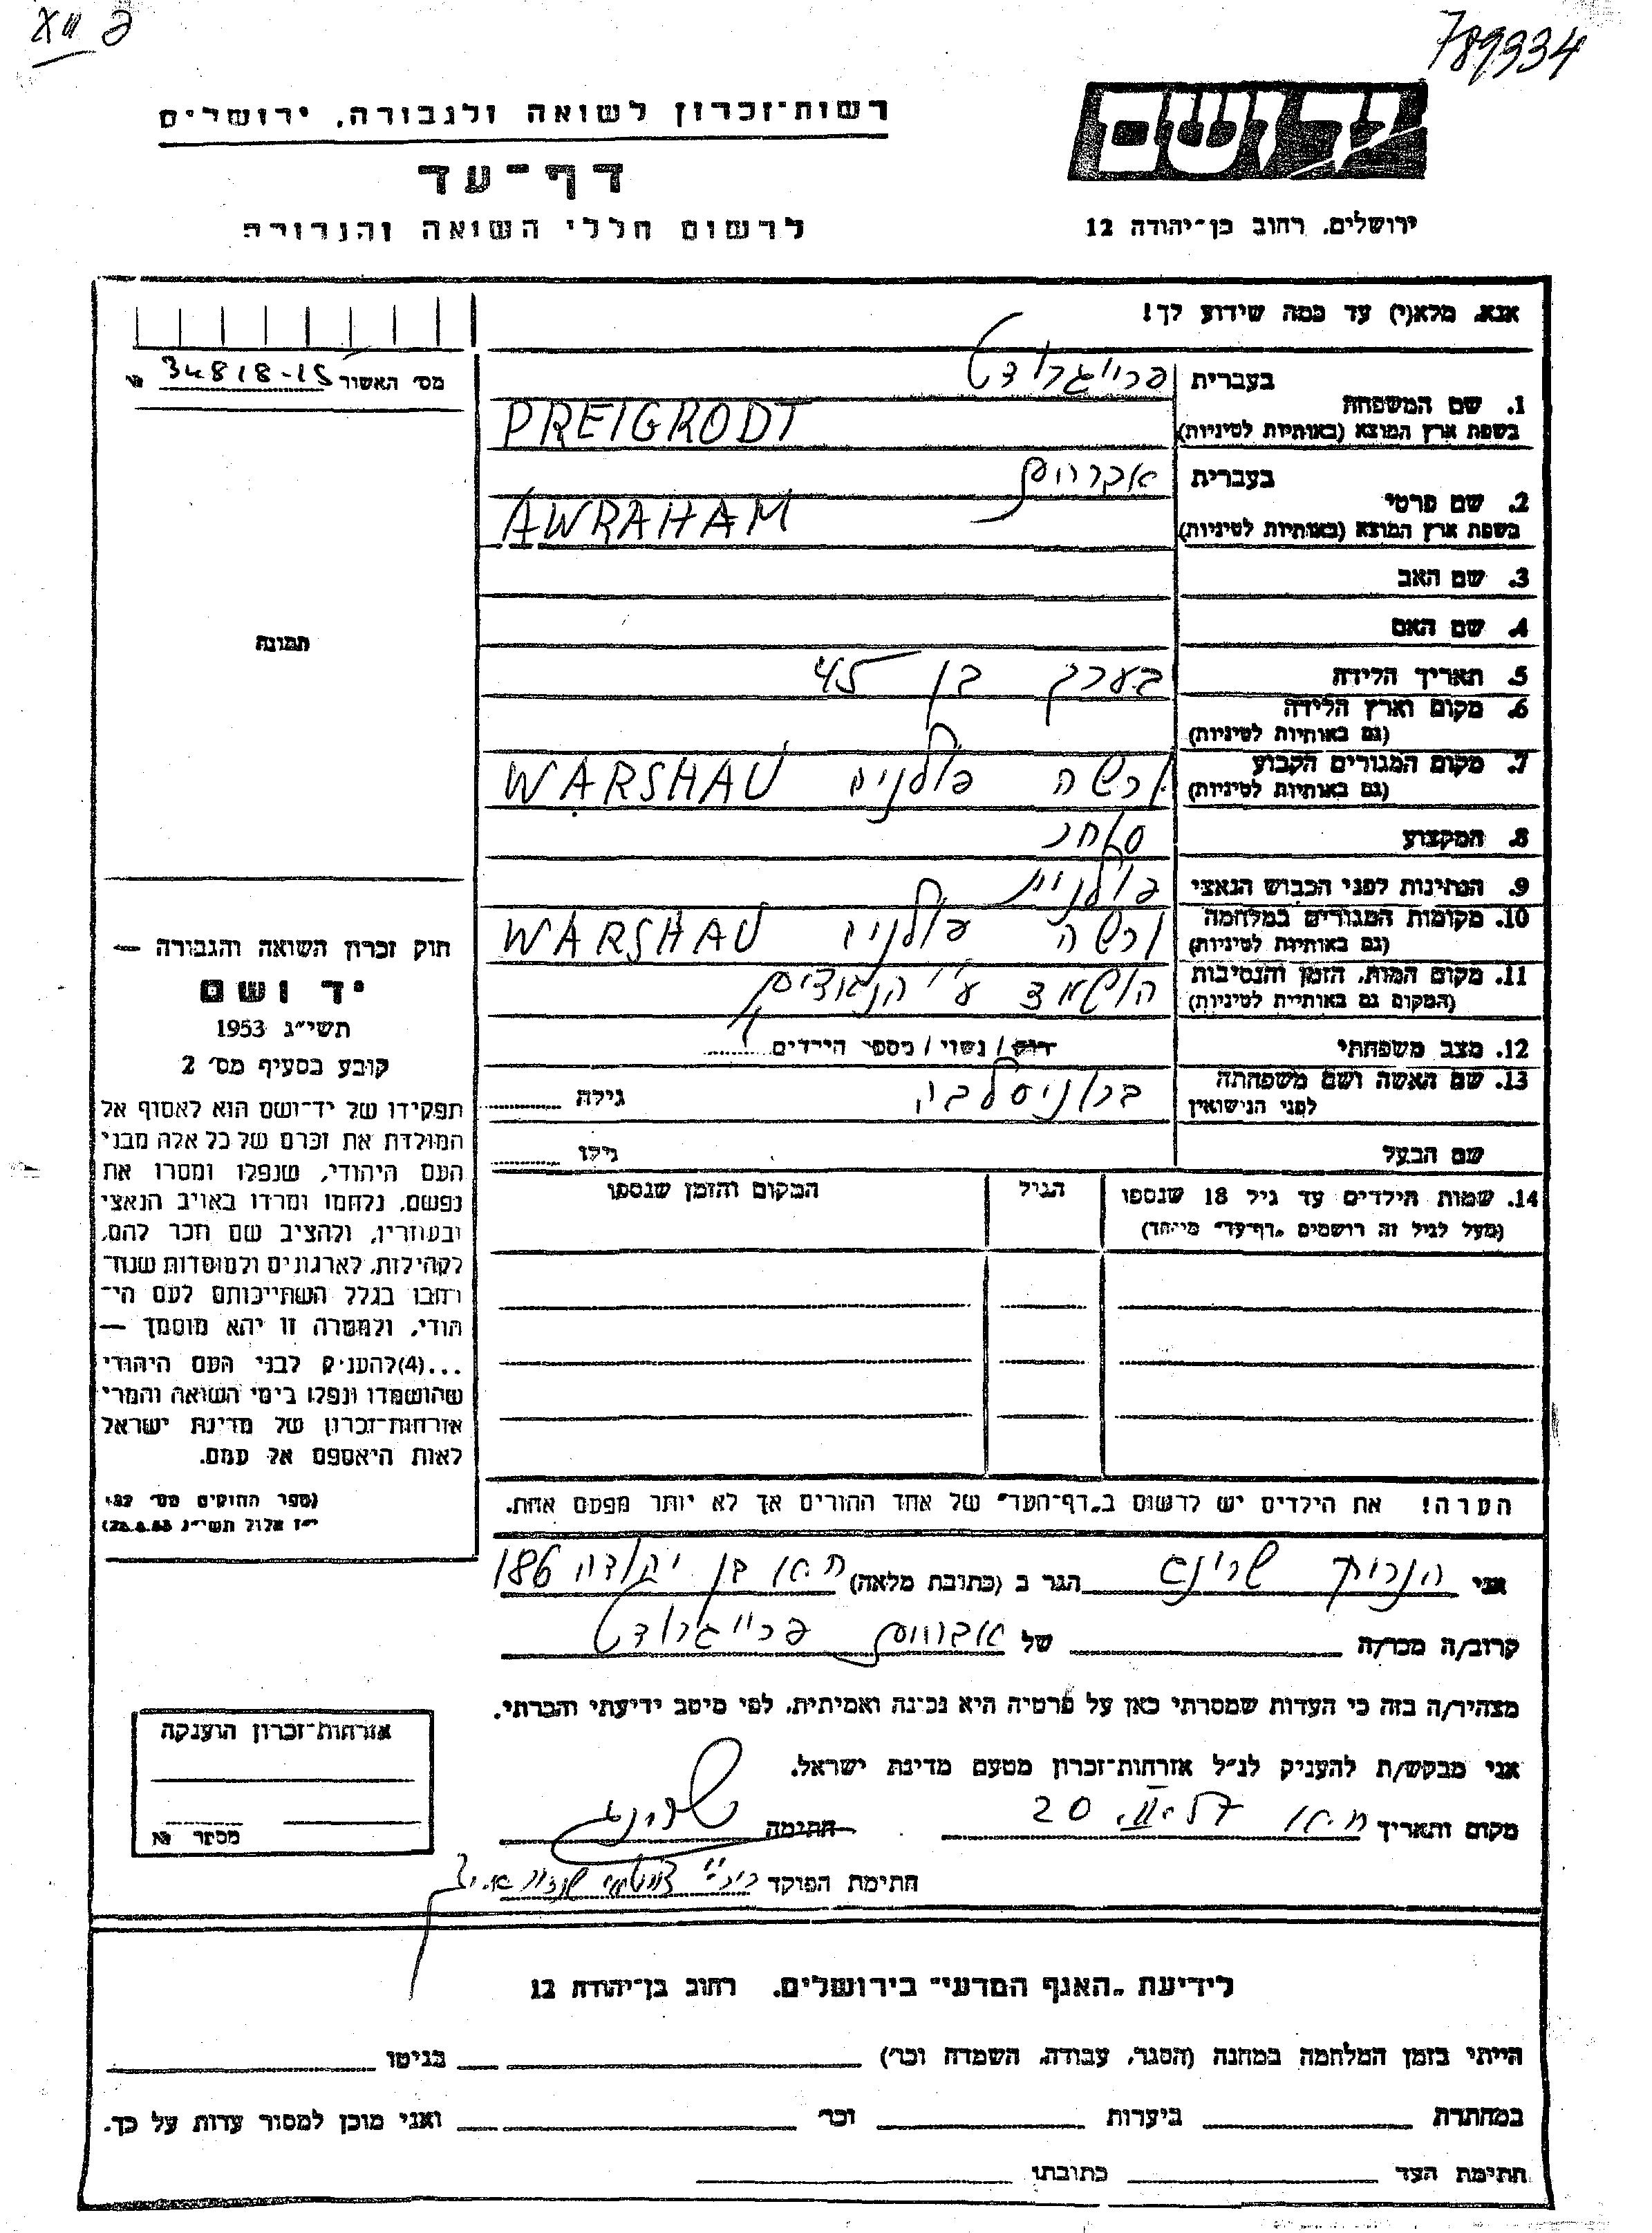 789334
רשות־זכרון לשואה ולגבורה, ירושלים
דף־עד
לרשום חללי השואה והגבורה
יד ושם
ירושלים, רחוב בן־יהודה 12
אנא, מלא(י) עד כמה שידוע לך!
מס׳ האשור 34818-15 №
תמונה
1. שם המשפחה
בעברית פרייגרודט
בשפת ארץ המוצא (באותיות לטיניות) PREIGRODT
2. שם פרטי
בעברית אברהם
בשפת ארץ המוצא (באותיות לטיניות) AWRAHAM
3. שם האב
4. שם האם
5. תאריך הלידה בערך בן 45
6. מקום וארץ הלידה
(גם באותיות לטיניות)
7. מקום המגורים הקבוע
(גם באותיות לטיניות) ורשה פולניה WARSHAU
8. המקצוע סוחר
9. הנתינות לפני הכבוש הנאצי פולנית
10. מקומות המגורים במלחמה
(גם באותיות לטיניות) ורשה פולניה WARSHAU
11. מקום המות, הזמן והנסיבות
(המקום גם באותיות לטיניות) הושמד ע״י הנאצים
12. מצב משפחתי רווק / נשוי / מספר הילדים
13. שם האשה ושם משפחתה
לפני הנישואין ברוניסלבה גילה
שם הבעל גילו
14. שמות הילדים עד גיל 18 שנספו
(מעל לגיל זה רושמים „דף־עד״ מיוחד)
הגיל
המקום והזמן שנספו
חוק זכרון השואה והגבורה —
יד ושם
תשי״ג 1953
קובע בסעיף מס׳ 2
תפקידו של יד־ושם הוא לאסוף אל
המולדת את זכרם של כל אלה מבני
העם היהודי, שנפלו ומסרו את
נפשם, נלחמו ומרדו באויב הנאצי
ובעוזריו, ולהציב שם וזכר להם,
לקהילות, לארגונים ולמוסדות שנח־
רבו בגלל השתייכותם לעם הי־
הודי, ולמטרה זו יהא מוסמך —
...(4)להעניק לבני העם היהודי
שהושמדו ונפלו בימי השואה והמרי
אזרחות־זכרון של מדינת ישראל
לאות היאספם אל עמם.
(ספר החוקים מס׳ 132,
י״ז אלול תשי״ג 28.8.53)
הערה! את הילדים יש לרשום ב„דף־העד״ של אחד ההורים אך לא יותר מפעם אחת.
אני הנריק שרינג הגר ב (כתובת מלאה) ת״א בן יהודה 186
קרוב/ה מכר/ה של אברהם פרייגרודט
מצהיר/ה בזה כי העדות שמסרתי כאן על פרטיה היא נכונה ואמיתית, לפי מיטב ידיעתי והכרתי.
אני מבקש/ת להעניק לנ״ל אזרחות־זכרון מטעם מדינת ישראל.
מקום ותאריך ת״א 20 חתימה שרינג
חתימת הפוקד
אזרחות־זכרון הוענקה
מספר №
לידיעת „האגף המדעי״ בירושלים, רחוב בן־יהודה 12
הייתי בזמן המלחמה במחנה (הסגר, עבודה, השמדה וכו׳) בגיטו
במחתרת ביערות וכו׳ ואני מוכן למסור עדות על כך.
חתימת העד כתובתו